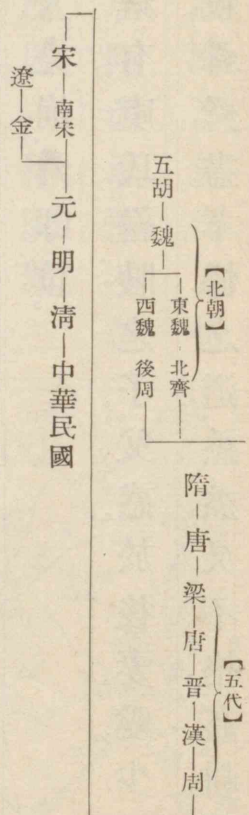 【北朝】
五胡―魏―東魏―北齊
西魏―後周
隋―唐―梁―唐―晋―漢―周
【五代】
宋―南宋―元―明―淸―中華民國
遼―金